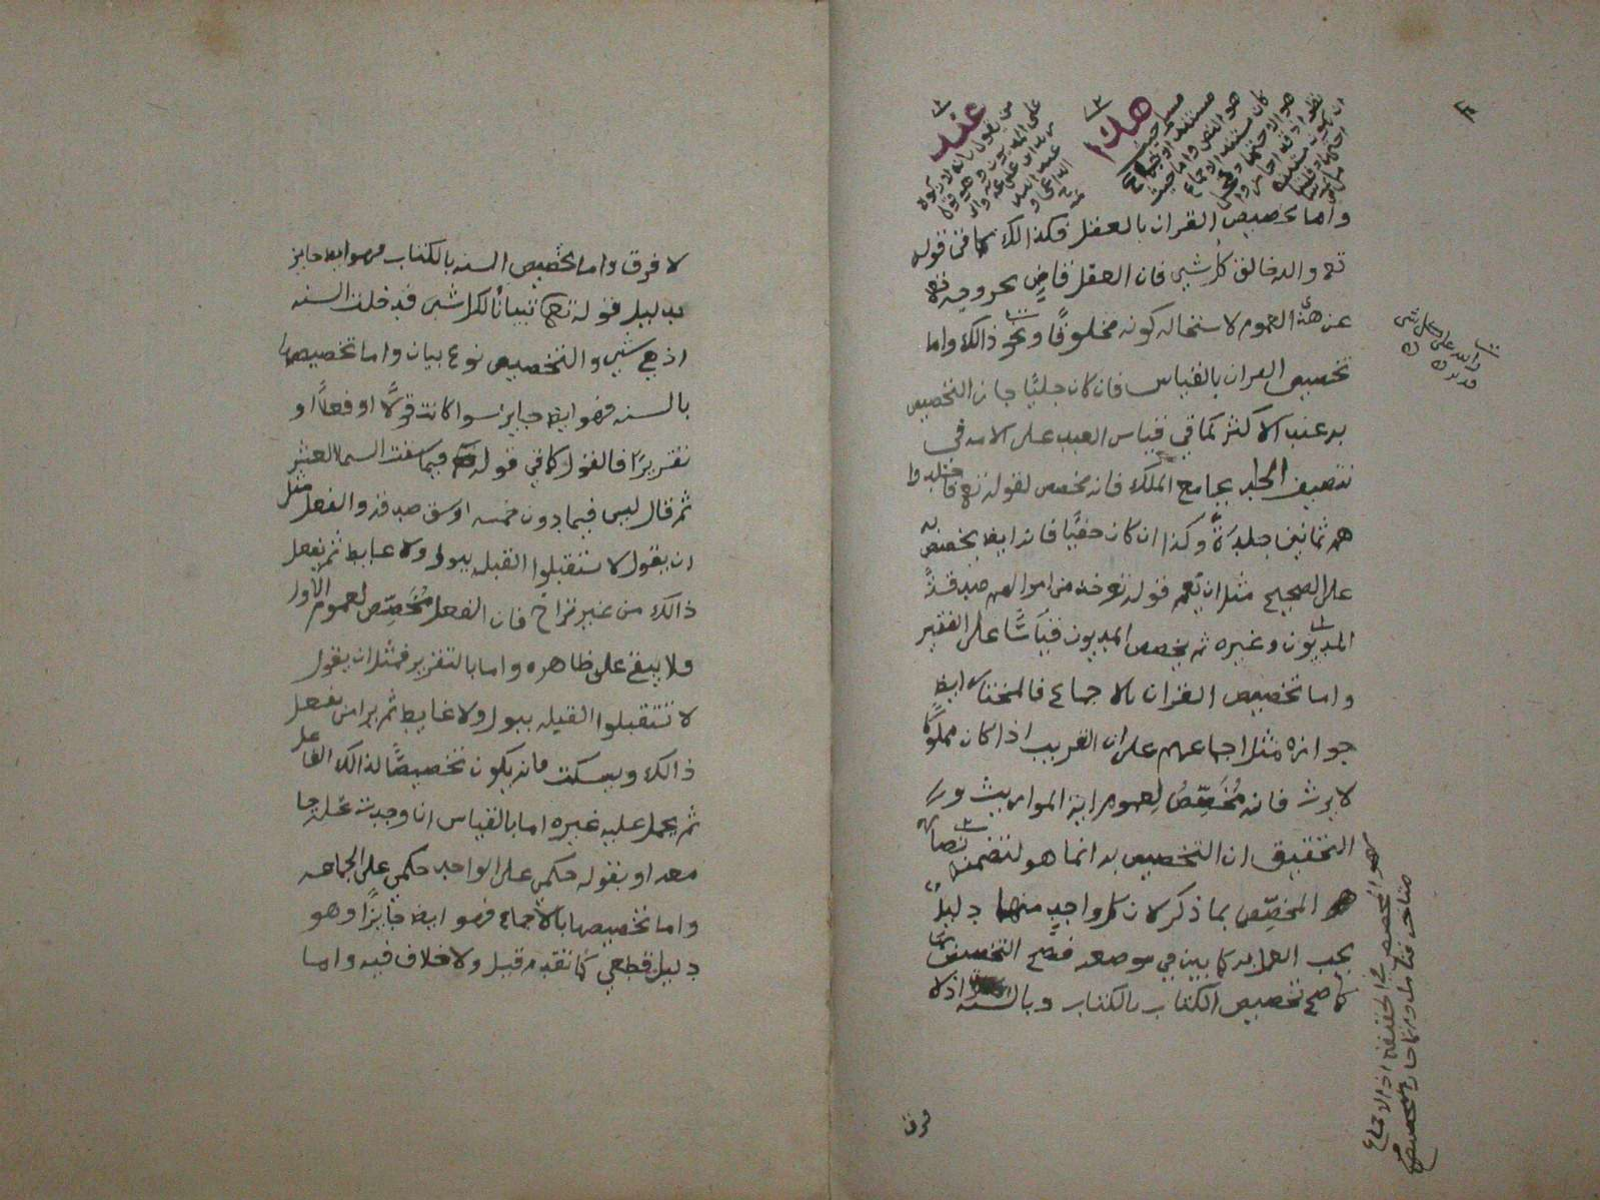 عند
من يقول بانه لا زكوة
على المديون وهو قول
هذا
واما تخصيص القران بالعقل فكذالك كما في قوله
تع والله خالق كل شيء فان العقل قاض بخروجه تع
عن هذا العموم لاستحالة كونه مخلوقًا ونحو ذالك واما
تخصيص القران بالقياس فان كان جليًا جاز التخصيص
به عند الاكثر كما في قياس العبد على الامه في
تنصيف الجلد بجامع الملك فانه مخصص لقوله تع فاجلدوا
هم ثمانين جلدةً وكذا ان كان خفيًا فانه ايض يخصص به
على الصحيح مثل ان يعم قوله تع خذ من اموالهم صدقةً
المديون وغيره ثم يخصص المديون قياسًا على الفقير
واما تخصيص القران بالاجماع فالمختار ايض
جوازه مثل اجماعهم على ان القريب اذا كان مملوكًا
لا يرث فانه مُخَصِّصٌ لعموم اية المواريث و
التحقيق ان التخصيص به انما هو لتضمنه نصا
هو المخصِّص بما ذكر لان كل واحدٍ منها دليلٌ
يجب العمل به كما بين في موضعه فصح التخصيص بها
كما صح تخصيص الكتاب بالكتاب وبالسنه اذ لا
والله على كل شيء
قدير
هو المخصص في الحقيقه اذ الاجماع
فرق
لا فرق واما تخصيص السنه بالكتاب فهو ايض جايز
بدليل قوله تعا تبيانًا لكل شيء فدخلت السنه
اذ هي شيء والتخصيص نوع بيان واما تخصيصها
بالسنه فهو ايض جايز سوا كانت قولًا او فعلًا او
تقريرًا فالقول كما في قوله فيما سقت السما العشر
ثم قال ليس فيما دون خمسه اوسق صدقه والفعل مثل
ان يقول لا تستقبلوا القبله ببول ولا غايط ثم يفعل
ذالك من غير تراخ فان الفعل مُخَصِّص لعموم الاول
فلا يبقى على ظاهره واما بالتقرير فمثل ان يقول
لا تستقبلوا القبله ببول ولا غايط ثم يرا من يفعل
ذالك ويسكت فانه يكون تخصيصًا لذالك الفاعل
ثم يحمل عليه غيره اما بالقياس ان وجدت عله جا
معه او بقوله حكمي على الواحد حكمي على الجماعه
واما تخصيصها بالاجماع فهو ايض جايزًا وهو
دليل قطعي كما تقدم قبل ولا خلاف فيه واما